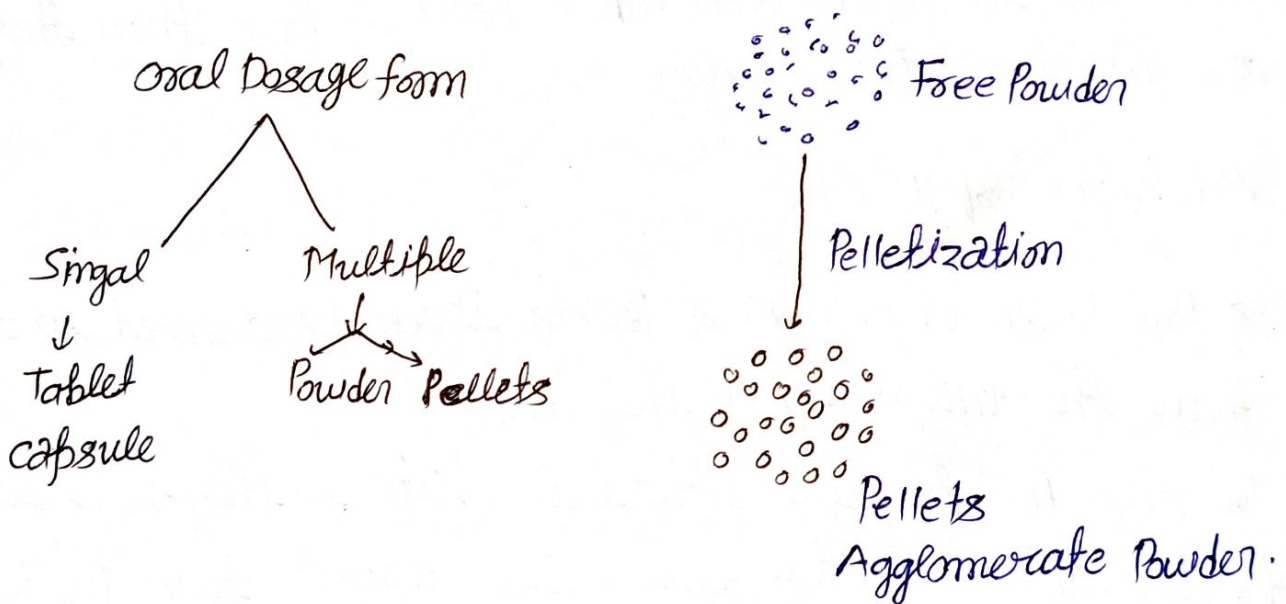 Oral Dosage form
Singal
Multiple
Tablet
capsule
Powder
Pellets
Free Powder
Pelletization
Pellets
Agglomerate Powder.